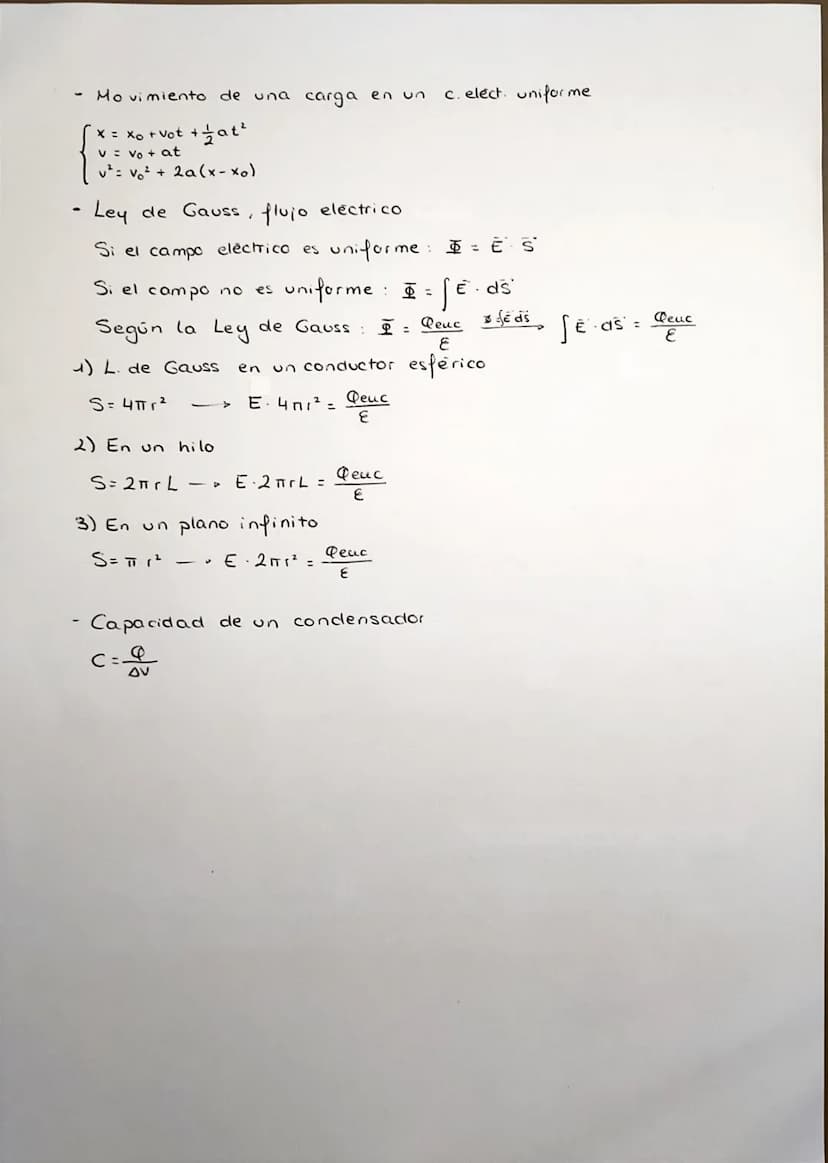 - Movimiento de una carga en un c. eléct. uniforme
x = x₀ + v₀t + ½at²
v = v₀ + at
v² = v₀² + 2a(x - x₀)
- Ley de Gauss, flujo eléctrico
Si el campo eléctrico es uniforme : Φ = E⃗ · S⃗
Si el campo no es uniforme : Φ = ∫E⃗ · dS⃗
Según la Ley de Gauss : Φ = Qenc/ε ⟶ ∫E⃗ · dS⃗ = Qenc/ε
1) L. de Gauss en un conductor esférico
S = 4πr² ⟶ E · 4πr² = Qenc/ε
2) En un hilo
S = 2πrL ⟶ E · 2πrL = Qenc/ε
3) En un plano infinito
S = πr² ⟶ E · 2πr² = Qenc/ε
- Capacidad de un condensador
C = Q/ΔV